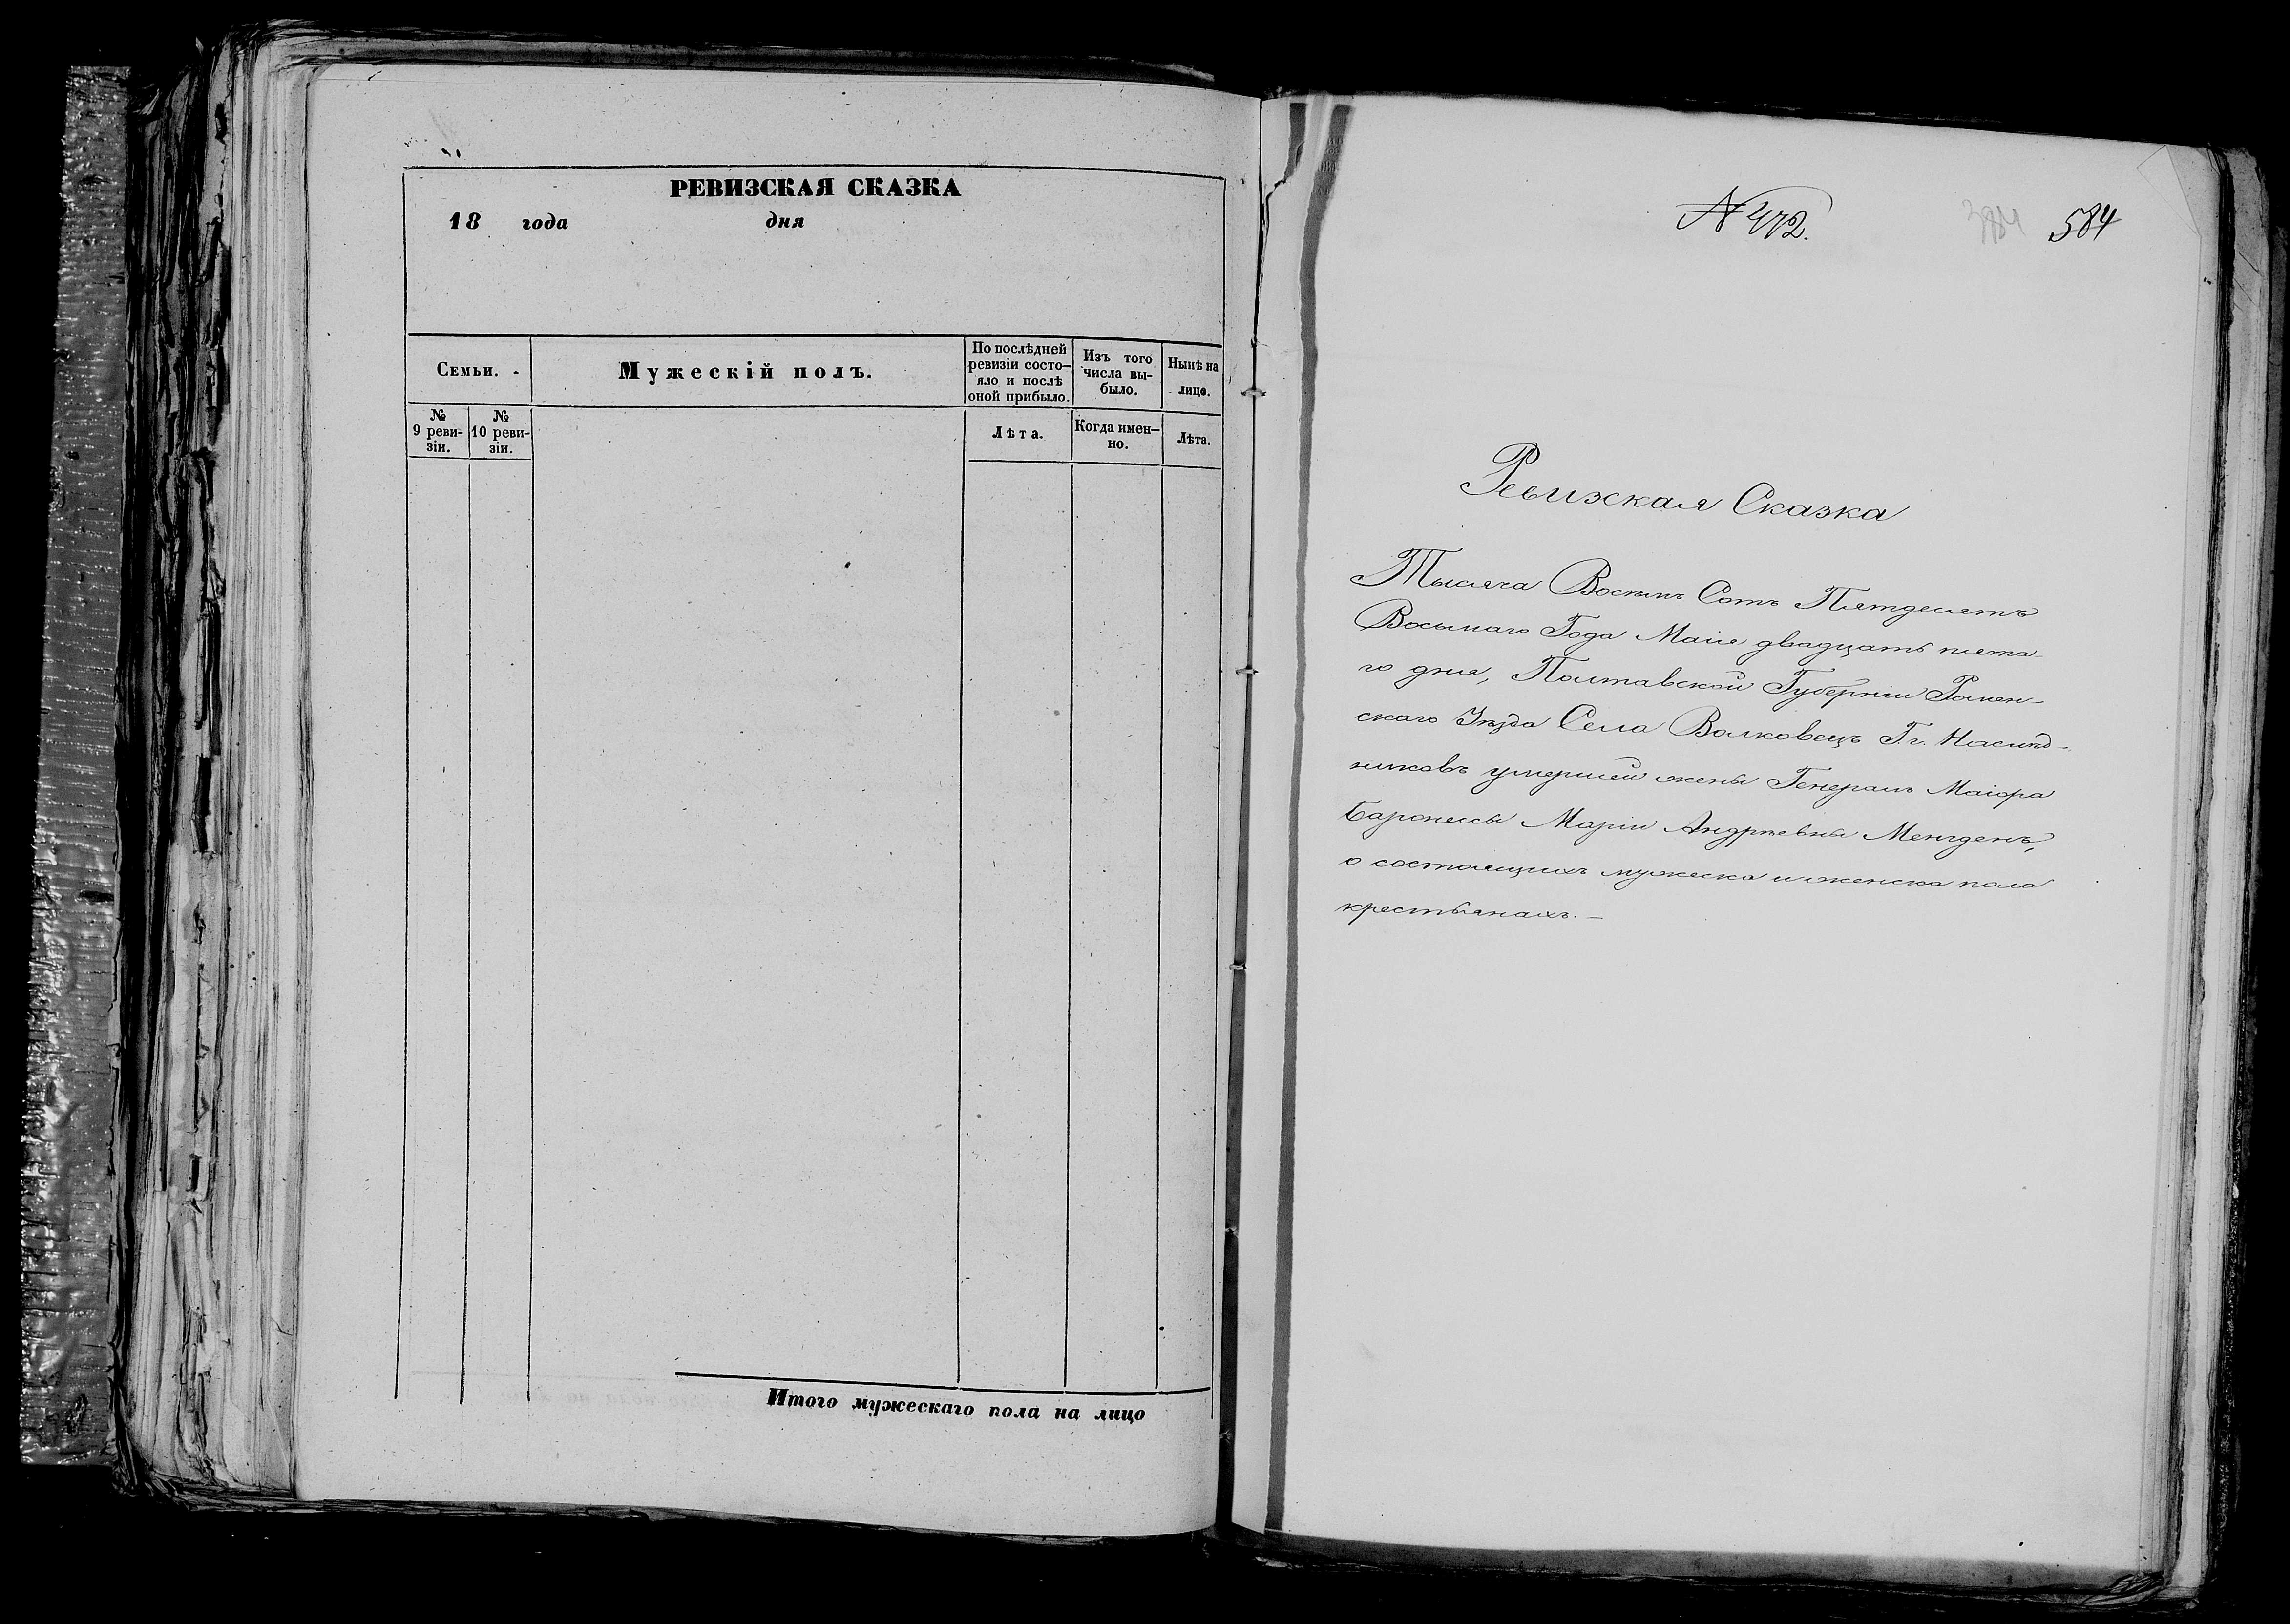 РЕВИЗСКАЯ СКАЗКА
18 года дня
Семьи.
Мужескій полъ.
По послѣдней
ревизіи состо-
яло и послѣ
оной прибыло.
Изъ того
числа вы-
было.
Нынѣ на
лицо.
№
9 реви-
зіи.
№
10 реви-
зіи.
Лѣта.
Когда имен-
но.
Лѣта.
Итого мужескаго пола на лицо
N 472.
584
Ревизская Сказка
Тысяча Восемь Сотъ Пятдесятъ
Восьмаго Года Маія двадцать пята-
го дня, Полтавской Губерніи Ромен-
скаго Уѣзда Села Волковецъ Г.г. Наслѣд-
никовъ умершей жены Генералъ Маіора
Баронессы Маріи Андрѣевны Менгденъ,
о состоящихъ мужеска и женска пола
крестьянахъ.—